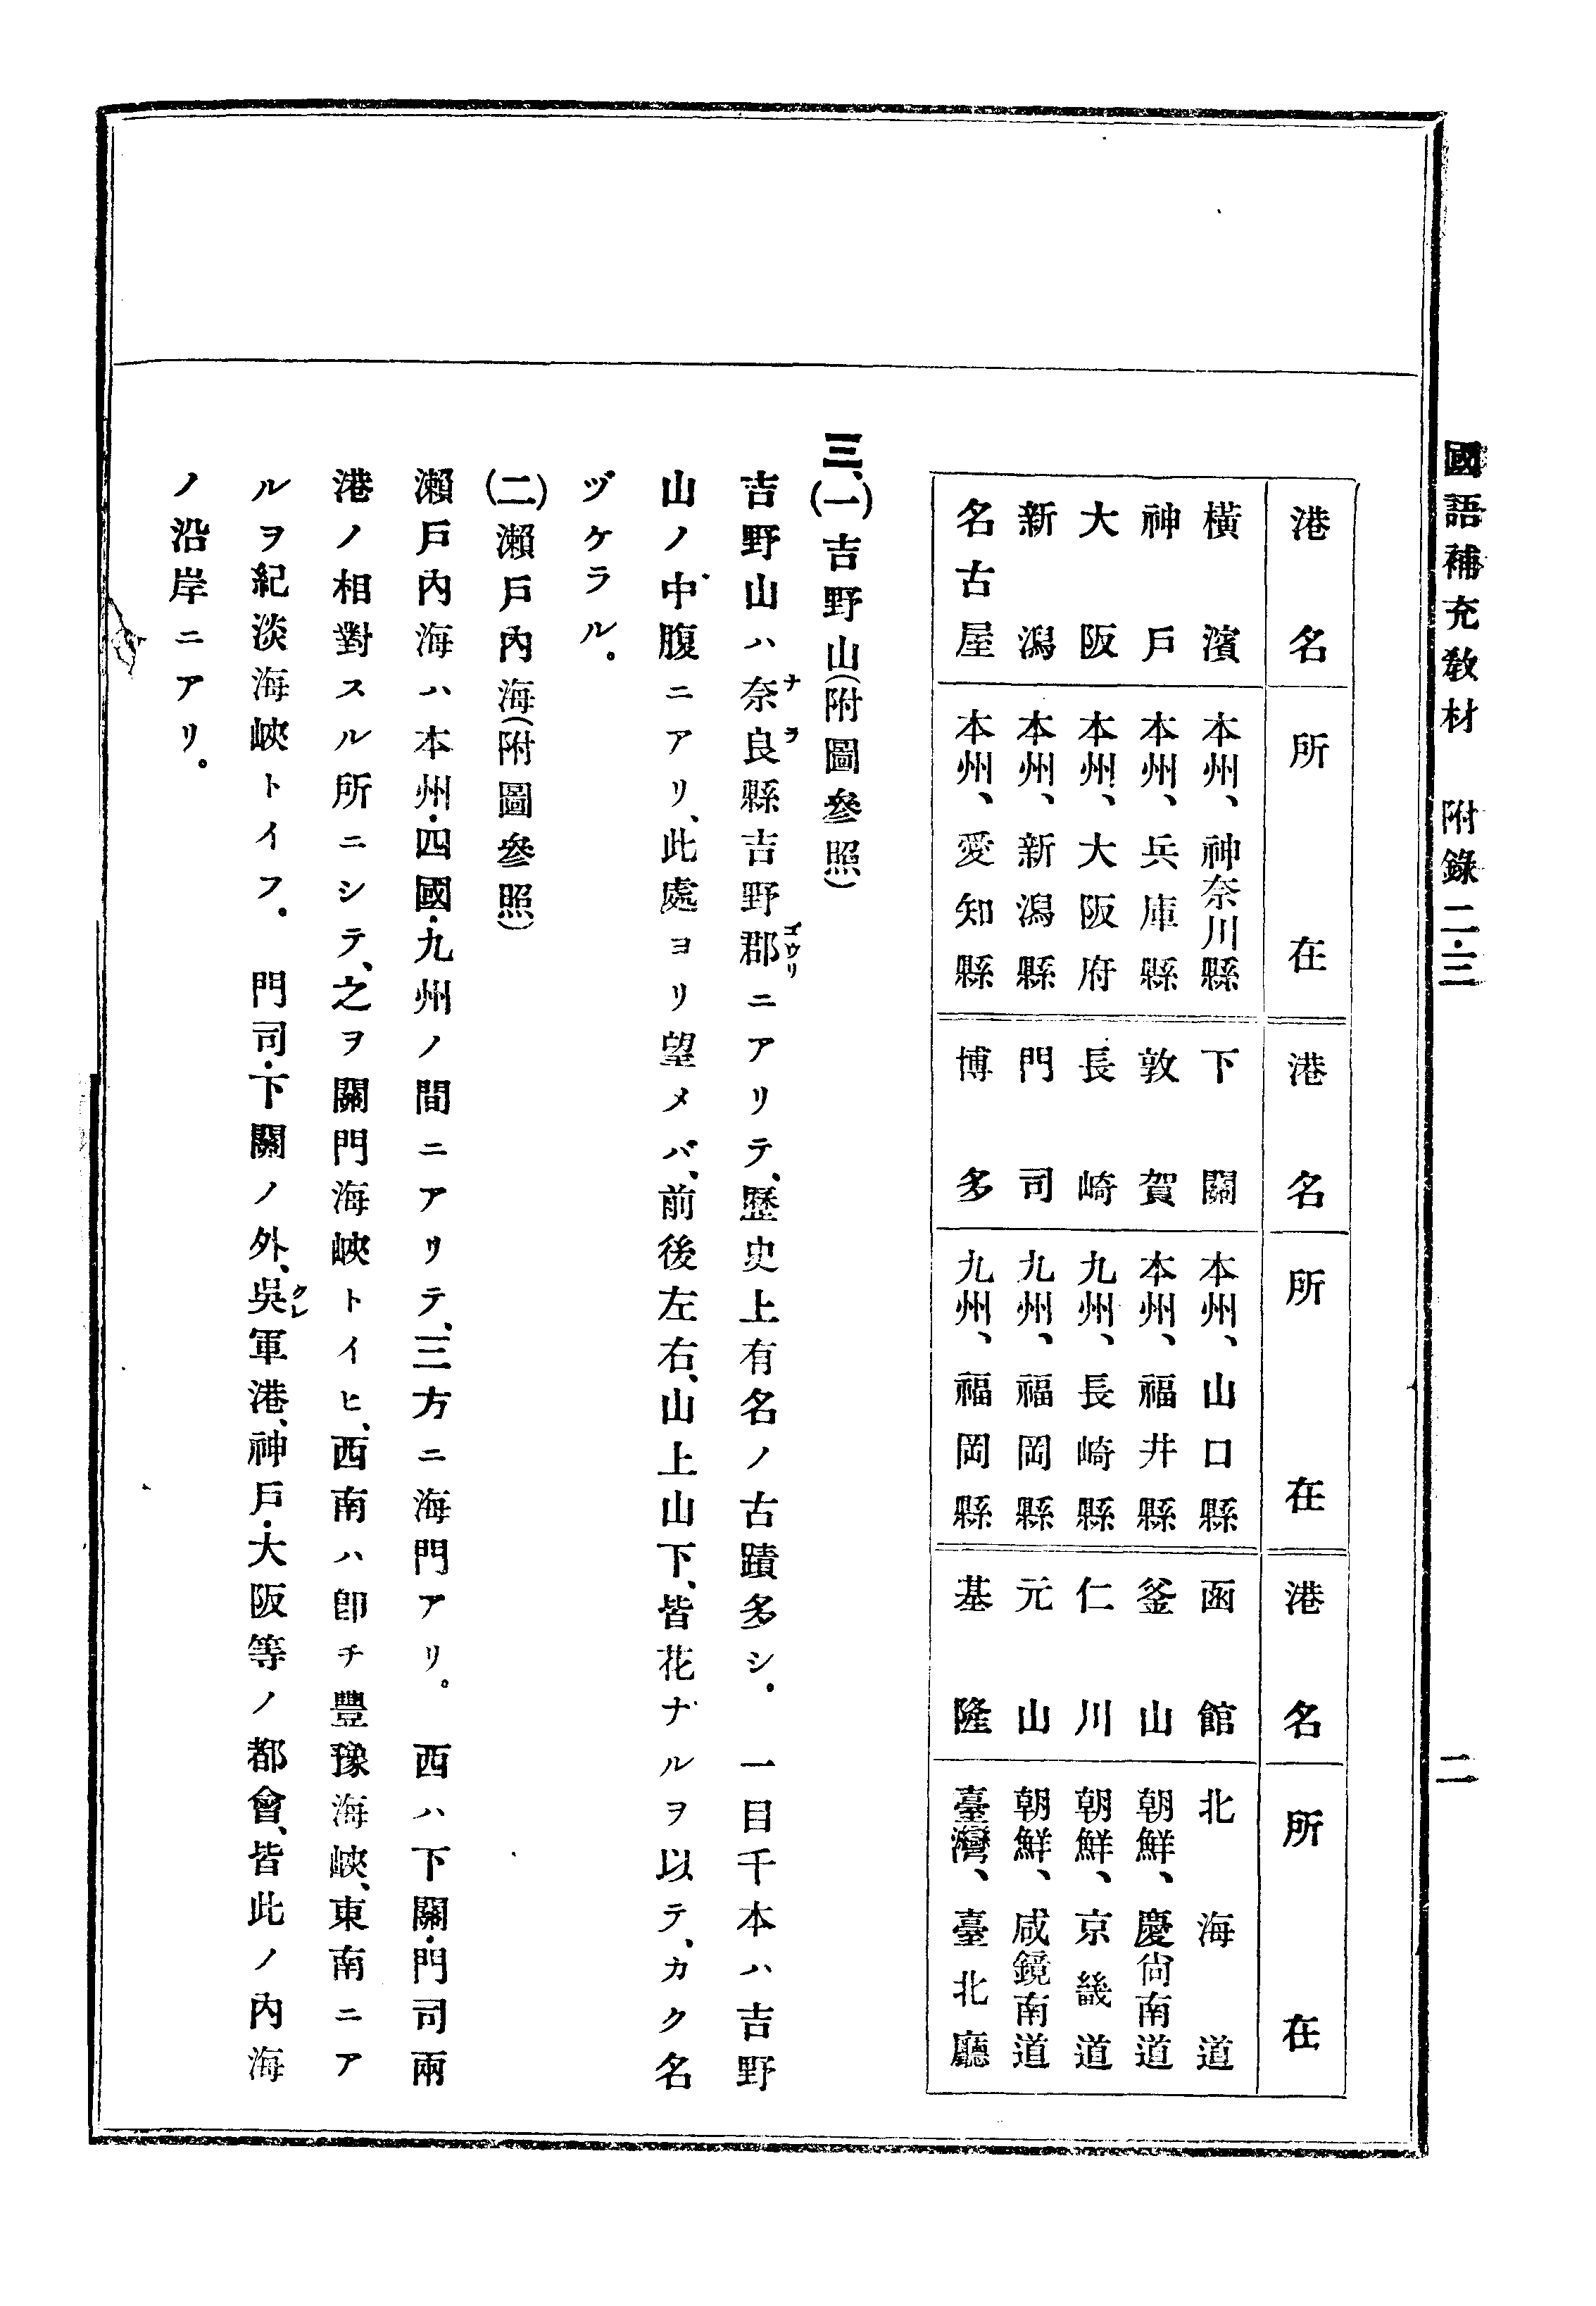 國語補充敎材　附錄二・三　二
港名　所在　港名　所在　港名　所在
橫濱　本州、神奈川縣　下關　本州、山口縣　函館　北海道
神戶　本州、兵庫縣　敦賀　本州、福井縣　釜山　朝鮮、慶尙南道
大阪　本州、大阪府　長崎　九州、長崎縣　仁川　朝鮮、京畿道
新潟　本州、新潟縣　門司　九州、福岡縣　元山　朝鮮、咸鏡南道
名古屋　本州、愛知縣　博多　九州、福岡縣　基隆　臺灣、臺北廳
三、(一)吉野山(附圖參照)
吉野山ハ奈良縣吉野郡ニアリテ、歷史上有名ノ古蹟多シ。　一目千本ハ吉野
ナラ　ゴウリ
山ノ中腹ニアリ、此處ヨリ望メバ、前後左右、山上山下、皆花ナルヲ以テ、カク名
ヅケラル。
(二)瀨戶內海(附圖參照)
瀨戶內海ハ本州・四國・九州ノ間ニアリテ、三方ニ海門アリ。　西ハ下關・門司兩
港ノ相對スル所ニシテ、之ヲ關門海峽トイヒ、西南ハ卽チ豐豫海峽、東南ニア
ルヲ紀淡海峽トイフ。　門司・下關ノ外、吳軍港、神戶・大阪等ノ都會、皆此ノ內海
クレ
ノ沿岸ニアリ。